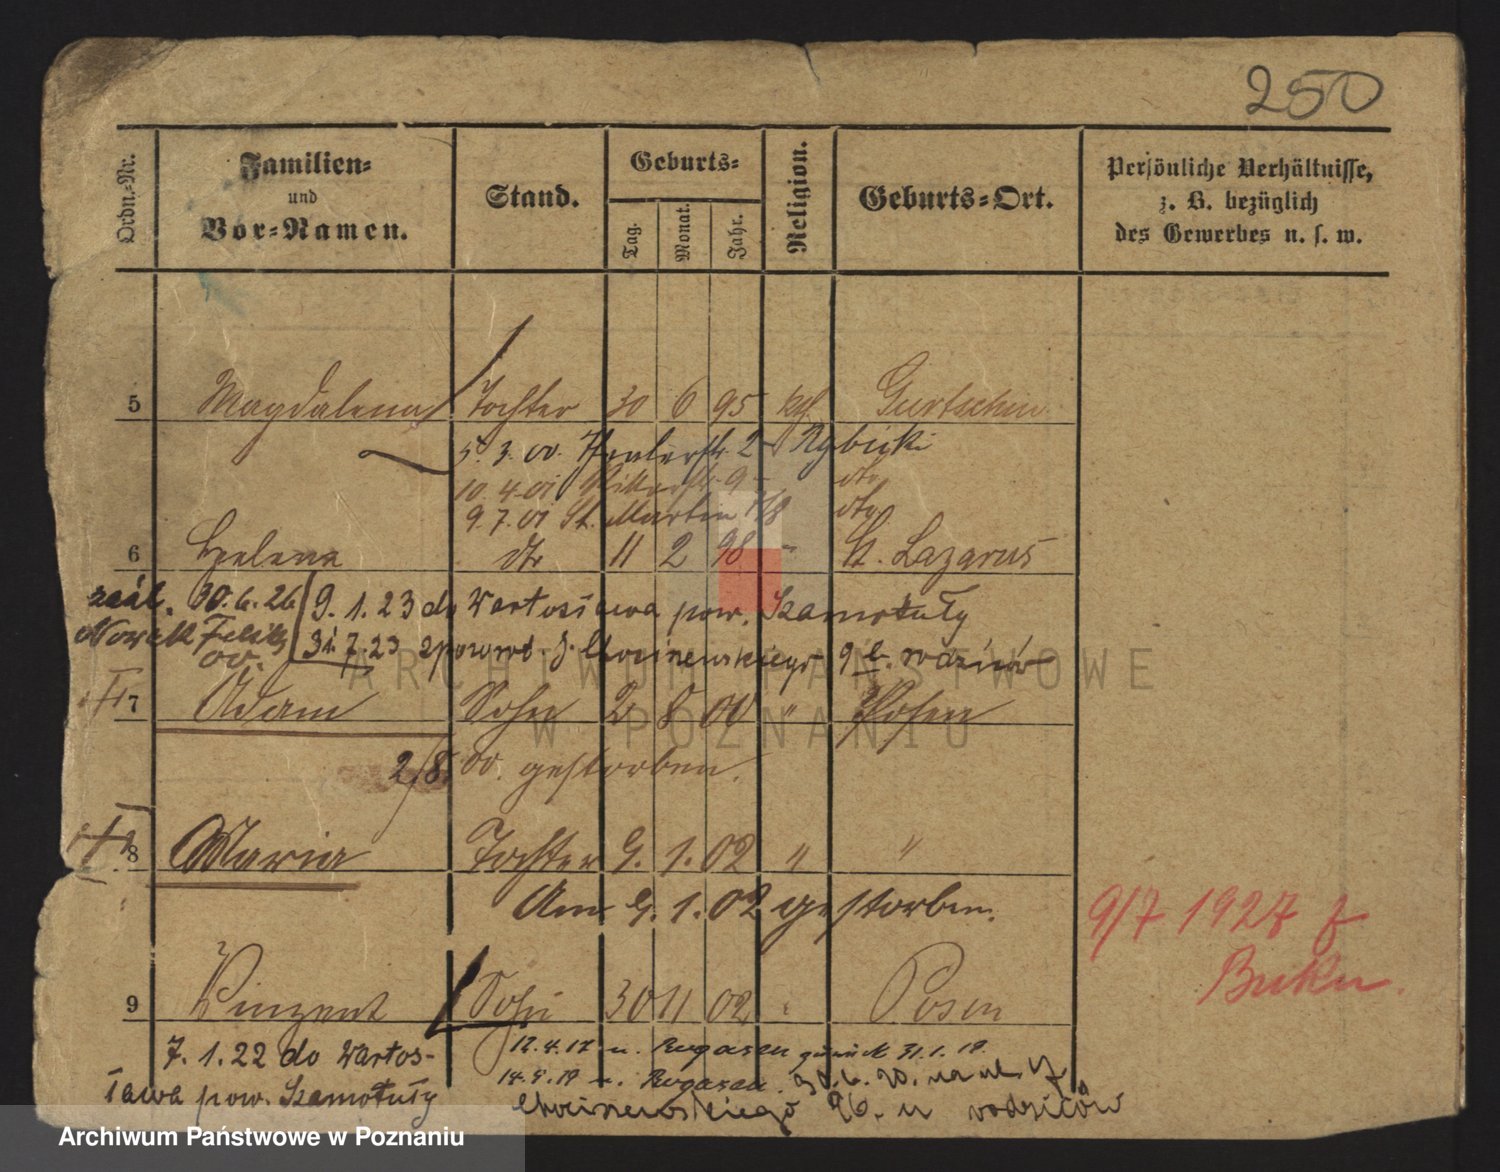 250
Ordn.-Nr.
Familien-
und
Vor-Namen.
Stand.
Geburts-
Tag. Monat. Jahr.
Religion.
Geburts-Ort.
Persönliche Verhältnisse,
z. B. bezüglich
des Gewerbes u. s. w.
5 Magdalena Tochter 30 6 95 kth Gurtschin
5. 3. 00. 2 Rybicki
10. 4. 01 Ritterstr. 9 dto
9. 7. 01 St. Martin dto
6 Helena dto 11 2 98 " St. Lazarus
30. 6. 26 9. 1. 23 do Wartosława pow. Szamotuły
Nowak Feliks 31. 7. 23 z powrot. 9 rodziców
7 Adam Sohn 2 8 00 " Posen
2/8. 00. gestorben.
8 Maria Tochter 9. 1. 02 " "
Am 9. 1. 02 gestorben.
9/7 1927
9 Vinzent Sohn 30 11 02 " Posen
7. 1. 22 do Wartos-
ława pow. Szamotuły
12. 4. 17 n. Rogasen zurück 31. 1. 19.
14. 5. 19 n. Rogasen. 30. 6. 20. na ul.
26. u rodziców
ARCHIWUM PAŃSTWOWE
W POZNANIU
Archiwum Państwowe w Poznaniu